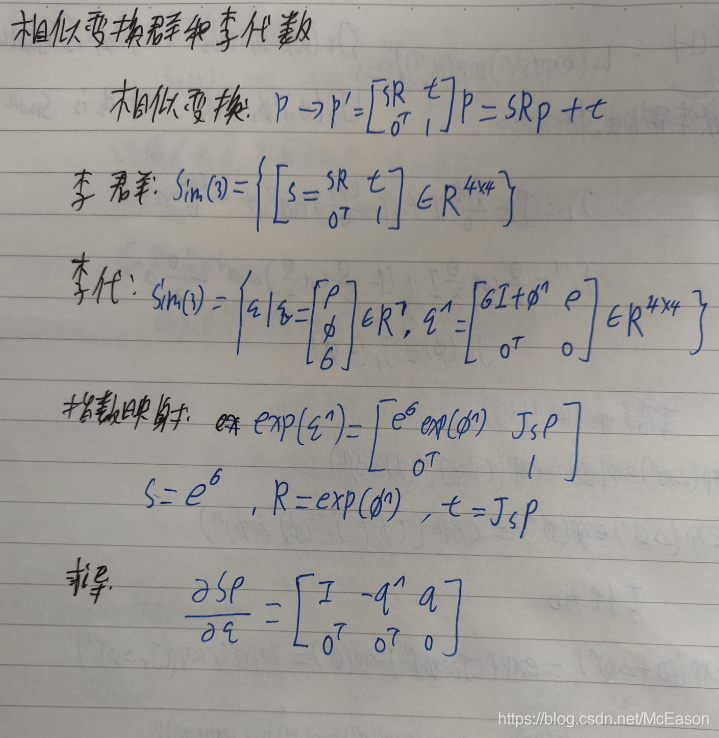 相似变换群和李代数
相似变换: p → p' = [sR t; 0ᵀ 1] p = sRp + t
李群: Sim(3) = { [S = sR t; 0ᵀ 1] ∈ R⁴ˣ⁴ }
李代: Sim(3) = { ξ | ξ = [ρ; φ; σ] ∈ R⁷, ξ^ = [σI + φ^ ρ; 0ᵀ 0] ∈ R⁴ˣ⁴ }
指数映射: exp(ξ^) = [e^σ exp(φ^) Jsρ; 0ᵀ 1]
s = e^σ , R = exp(φ^) , t = Jsρ
求导: ∂Sp/∂ξ = [I -q^ q; 0ᵀ 0ᵀ 0]
https://blog.csdn.net/McEason